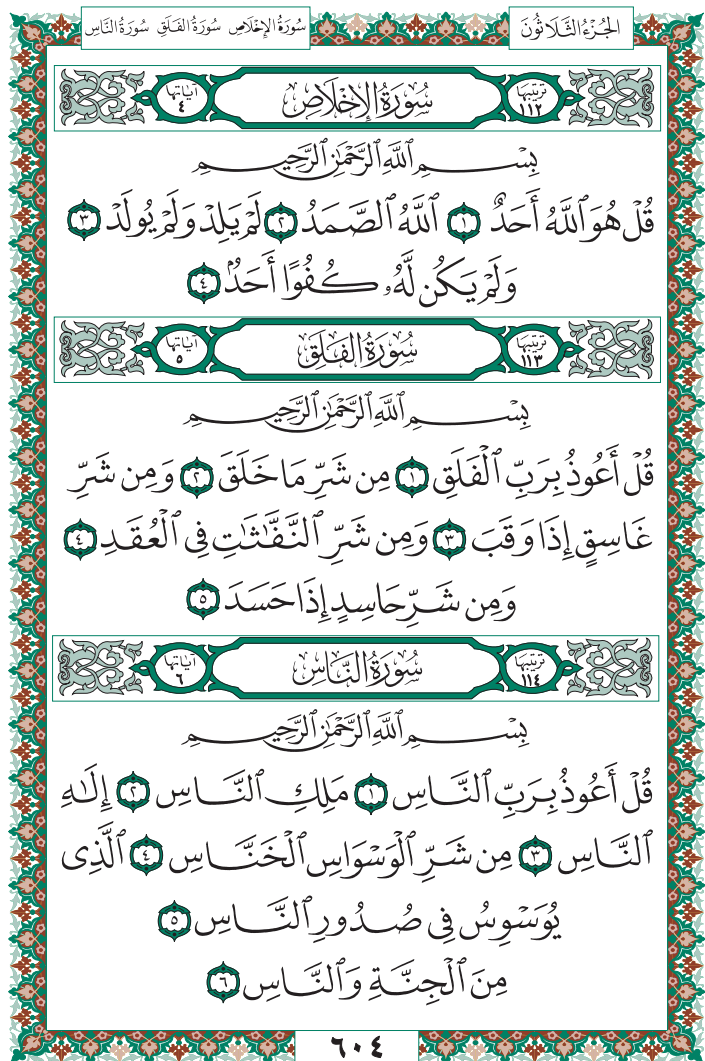 الجُزْءُ الثَّلَاثُونَ
سُورَةُ الإِخْلَاصِ سُورَةُ الفَلَقِ سُورَةُ النَّاسِ
تَرتيبُها ١١٢ سُورَةُ الإِخْلَاصِ آيَاتها ٤
بِسْمِ ٱللَّهِ ٱلرَّحْمَٰنِ ٱلرَّحِيمِ
قُلْ هُوَ ٱللَّهُ أَحَدٌ ١ ٱللَّهُ ٱلصَّمَدُ ٢ لَمْ يَلِدْ وَلَمْ يُولَدْ ٣
وَلَمْ يَكُن لَّهُۥ كُفُوًا أَحَدٌۢ ٤
تَرتيبُها ١١٣ سُورَةُ الفَلَقِ آيَاتها ٥
بِسْمِ ٱللَّهِ ٱلرَّحْمَٰنِ ٱلرَّحِيمِ
قُلْ أَعُوذُ بِرَبِّ ٱلْفَلَقِ ١ مِن شَرِّ مَا خَلَقَ ٢ وَمِن شَرِّ
غَاسِقٍ إِذَا وَقَبَ ٣ وَمِن شَرِّ ٱلنَّفَّٰثَٰتِ فِى ٱلْعُقَدِ ٤
وَمِن شَرِّ حَاسِدٍ إِذَا حَسَدَ ٥
تَرتيبُها ١١٤ سُورَةُ النَّاسِ آيَاتها ٦
بِسْمِ ٱللَّهِ ٱلرَّحْمَٰنِ ٱلرَّحِيمِ
قُلْ أَعُوذُ بِرَبِّ ٱلنَّاسِ ١ مَلِكِ ٱلنَّاسِ ٢ إِلَٰهِ
ٱلنَّاسِ ٣ مِن شَرِّ ٱلْوَسْوَاسِ ٱلْخَنَّاسِ ٤ ٱلَّذِى
يُوَسْوِسُ فِى صُدُورِ ٱلنَّاسِ ٥
مِنَ ٱلْجِنَّةِ وَٱلنَّاسِ ٦
٦٠٤